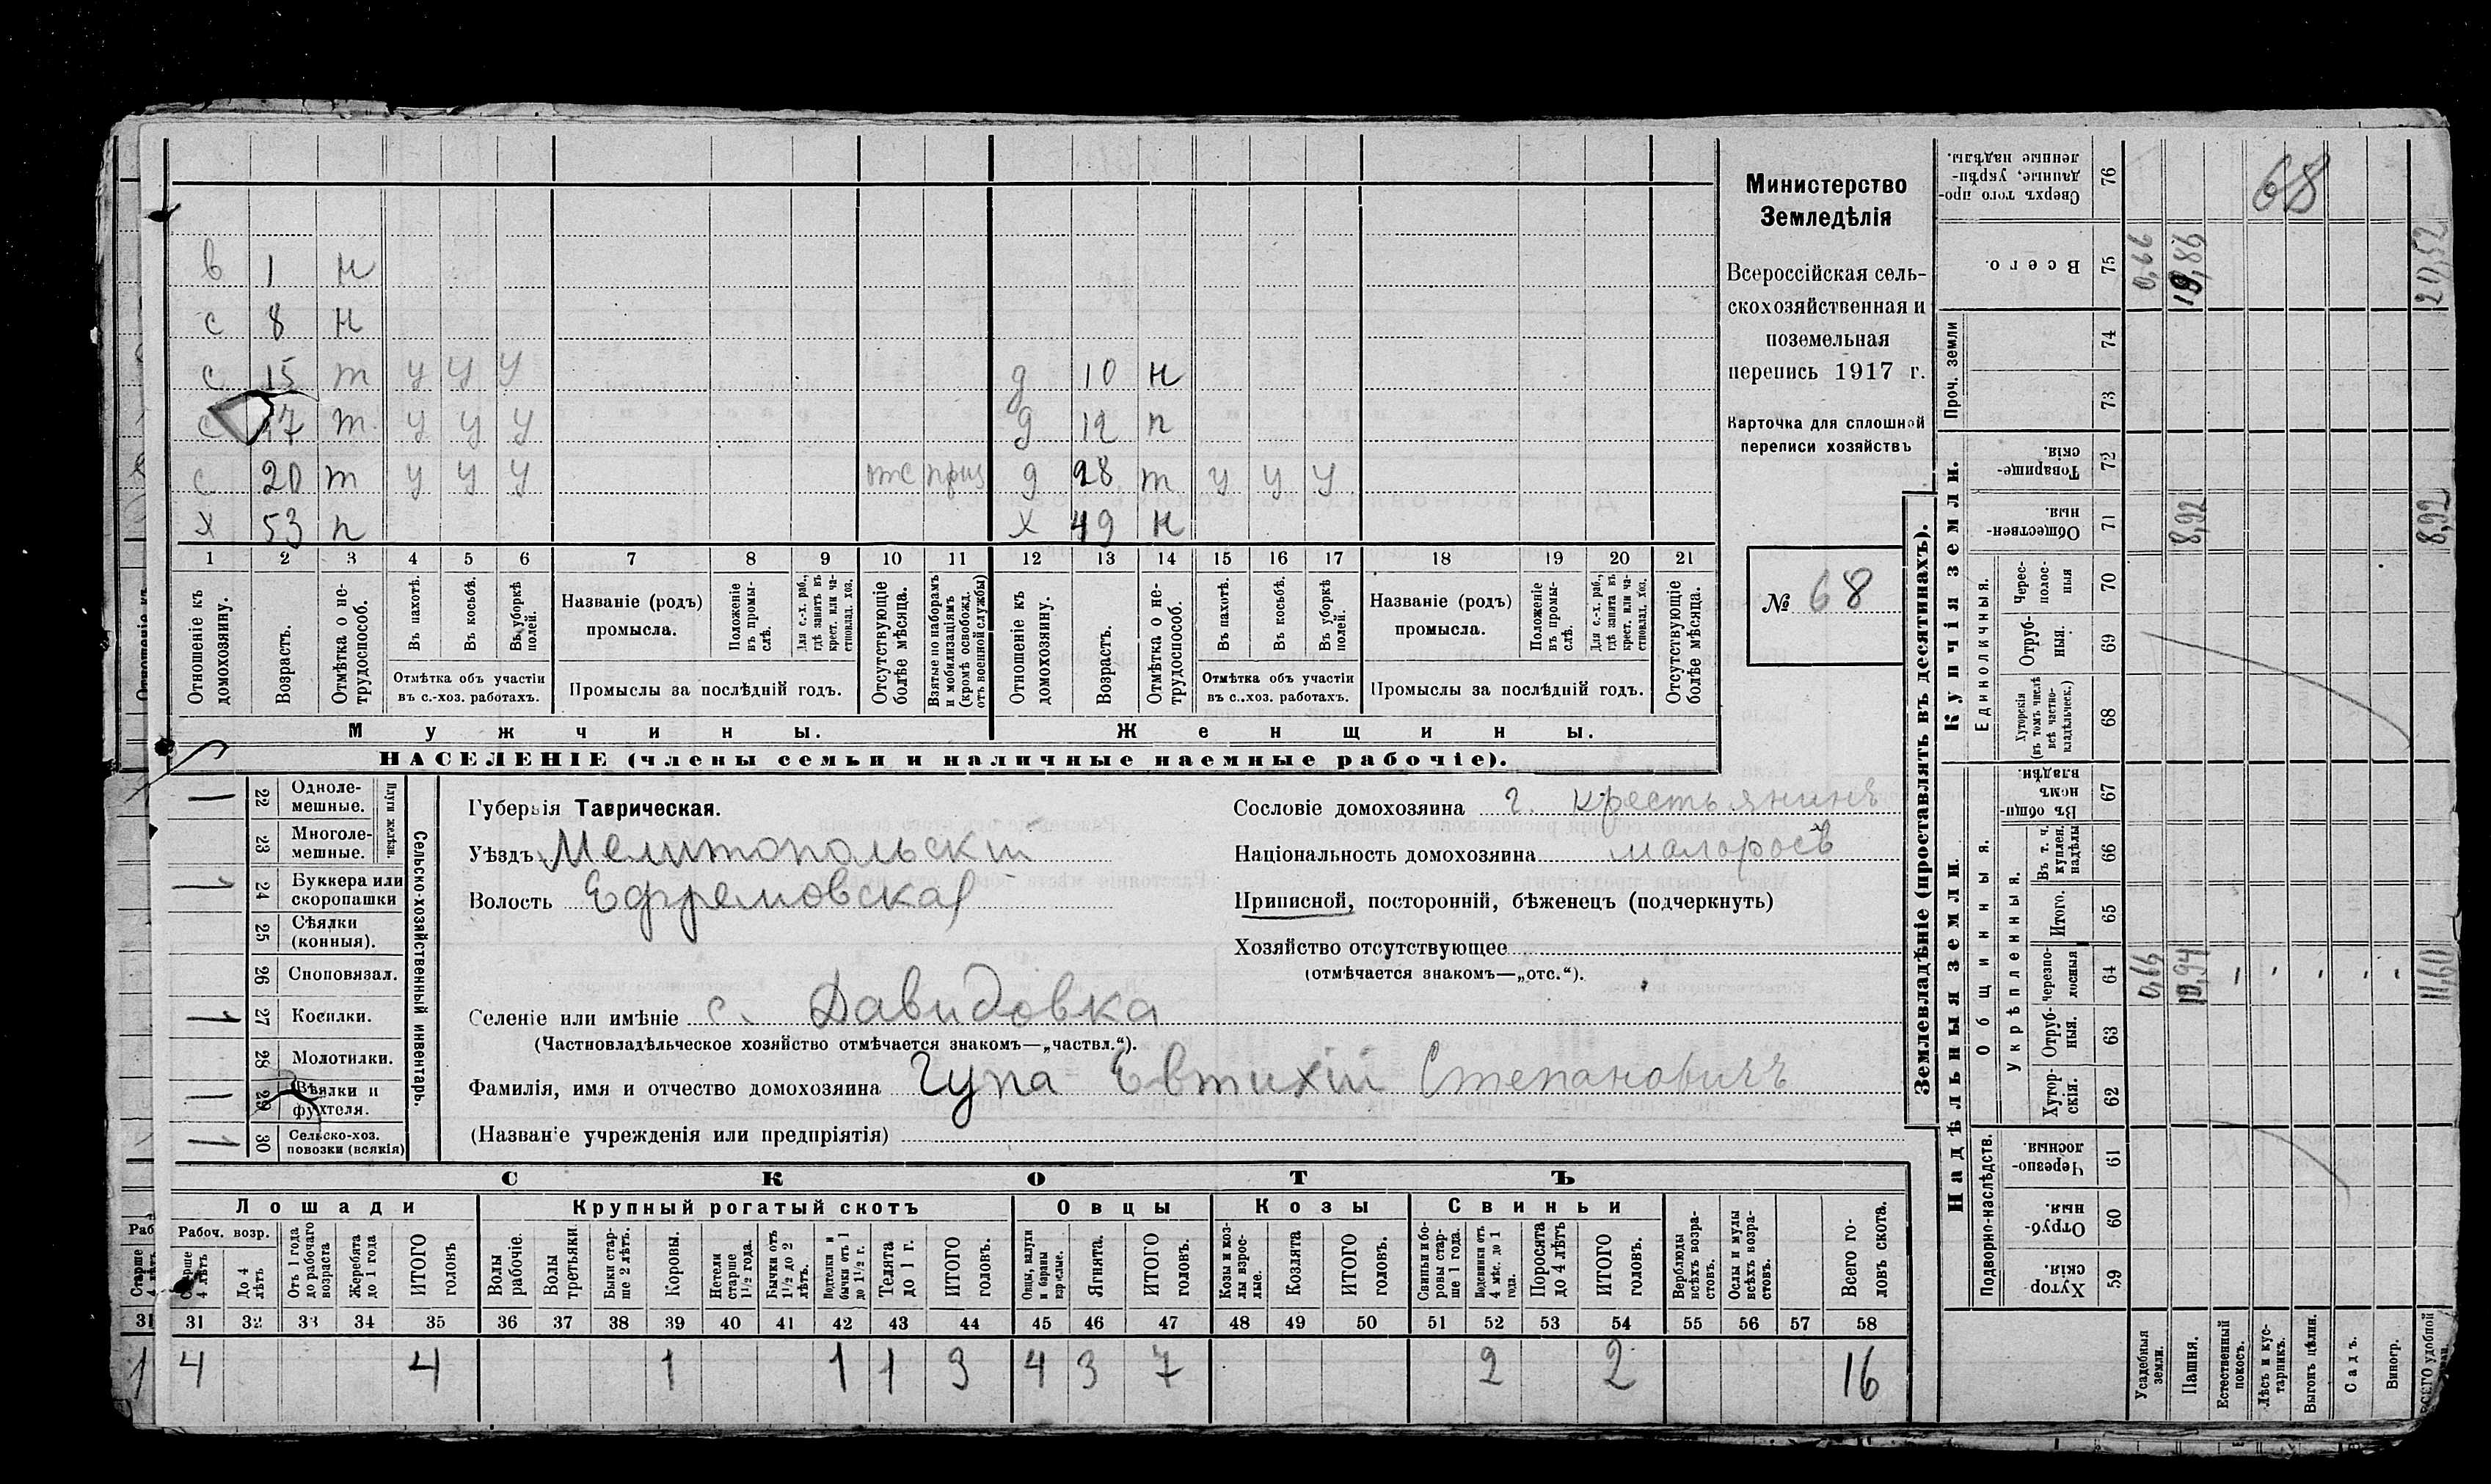 в 1 н
с 8 н
с 15 т у у у д 10 н
с 17 т у у у д 12 п
с 20 т у у у отс приз д 28 т у у у
х 53 п х 49 н
1 2 3 4 5 6 7 8 9 10 11 12 13 14 15 16 17 18 19 20 21
Отношеніе къ домохозяину.
Возрастъ.
Отмѣтка о не-
трудоспособ.
Въ пахотѣ.
Въ косьбѣ.
Въ уборкѣ полей.
Отмѣтка объ участіи
въ с.-хоз. работахъ.
Названіе (родъ)
промысла.
Положеніе въ промы-
слѣ.
Для с.-х. раб., гдѣ занятъ въ крест. или ча-
стновлад. хоз.
Промыслы за послѣдній годъ.
Отсутствующіе болѣе мѣсяца.
Взятые по наборамъ и мобилизаціямъ (кромѣ освобожд. отъ военной службы)
Отношеніе къ домохозяину.
Возрастъ.
Отмѣтка о не-
трудоспособ.
Въ пахотѣ.
Въ косьбѣ.
Въ уборкѣ полей.
Отмѣтка объ участіи
въ с.-хоз. работахъ.
Названіе (родъ)
промысла.
Положеніе въ промы-
слѣ.
Для с.-х. раб., гдѣ занята въ крест. или ча-
стновлад. хоз.
Промыслы за послѣдній годъ.
Отсутствующіе болѣе мѣсяца.
Мужчины. Женщины.
НАСЕЛЕНІЕ (члены семьи и наличные наемные рабочіе).
Министерство
Земледѣлія
Всероссійская сель-
скохозяйственная и
поземельная
перепись 1917 г.
Карточка для сплошной
переписи хозяйствъ
№ 68
22 Одноле-
мешные.
23 Многоле-
мешные.
Плуги желѣз.
24 Буккера или
скоропашки
25 Сѣялки
(конныя).
26 Сноповязал.
27 Косилки.
28 Молотилки.
29 Вѣялки и
фухтеля.
30 Сельско-хоз.
повозки (всякія)
Сельско-хозяйственный инвентарь.
Губернія Таврическая.
Уѣздъ Мелитопольскій
Волость Ефремовская
Селеніе или имѣніе с. Давидовка
(Частновладѣльческое хозяйство отмѣчается знакомъ—„частвл.“).
Фамилія, имя и отчество домохозяина Гупа Евтихій Степановичъ
(Названіе учрежденія или предпріятія)
Сословіе домохозяина г. крестьянинъ
Національность домохозяина малороссъ
Приписной, посторонній, бѣженецъ (подчеркнуть)
Хозяйство отсутствующее
(отмѣчается знакомъ—„отс.“).
СКОТЪ
Лошади Крупный рогатый скотъ Овцы Козы Свиньи
Рабоч. возр.
Старше 4 лѣтъ
До 4 лѣтъ
Отъ 1 года до рабочаго возраста
Жеребята до 1 года
ИТОГО головъ
Волы рабочіе.
Волы третьяки.
Быки стар-
ше 2 лѣтъ.
Коровы.
Нетели старше 1½ года.
Бычки отъ 1½ до 2 лѣтъ.
Подтелки и бычки отъ 1 до 1½ г.
Телята до 1 г.
ИТОГО головъ.
Овцы, валухи и бараны взрослые.
Ягнята.
ИТОГО головъ.
Козы и коз-
лы взрос-
лые.
Козлята
ИТОГО головъ.
Свиньи и бо-
ровы стар-
ше 1 года.
Подсвинки отъ 4 мѣс. до 1 года.
Поросята до 4 лѣтъ
ИТОГО головъ.
Верблюды всѣхъ возра-
стовъ.
Ослы и мулы всѣхъ возра-
стовъ.
Всего го-
ловъ скота.
31 32 33 34 35 36 37 38 39 40 41 42 43 44 45 46 47 48 49 50 51 52 53 54 55 56 57 58
4 4 1 1 1 3 4 3 7 2 2 16
Землевладѣніе (проставлять въ десятинахъ).
Купчія земли.
Надѣльныя земли.
Сверхъ того про-
данные, укрѣп-
ленные надѣлы. 76
68
Всего. 75 0,66 19,86 20,52
Проч. земли 74 73
Товарище-
скія. 72
Обществен-
ныя. 71 8,92 8,92
Единоличныя.
Черес-
полос-
ныя 70
Отруб-
ныя. 69
Хуторскія (въ томъ числѣ всѣ частно-
владѣльческ.) 68
Общинныя.
Въ общин-
номъ владѣн. 67
Укрѣпленныя.
Въ т. ч. куплен. надѣлы 66
Итого. 65
черезпо-
лосныя 64 0,66 10,94 11,60
Отруб-
ныя. 63
Хутор-
скія. 62
Подворно-наслѣдств.
Черезпо-
лосныя 61
Отруб-
ныя 60
Хутор-
скія. 59
Усадебныя земли.
Пашня.
Естественный покосъ.
Лѣсъ и кус-
тарникъ.
Выгонъ цѣлин.
Садъ.
Виногр.
ВСЕГО удобной